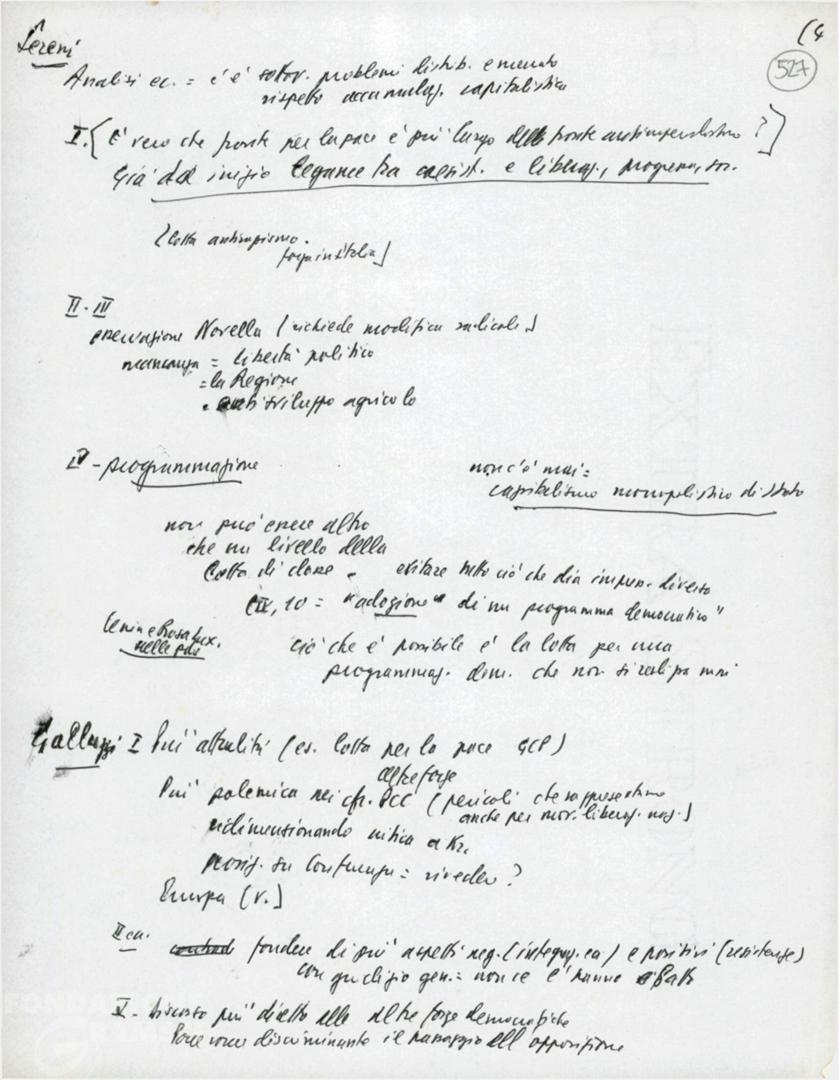 (4
527
Sereni
Analisi ec. = c'è sottov. problemi distrib. e mercato
rispetto accumulaz. capitalistica
I. [È vero che fronte per la pace è più largo della fronte antimperialismo?]
Già dal inizio legame tra coesist. e liberaz., progresso, soc.
[lotta antimpismo.
forza in Italia]
II-III
osservazione Novella (richiede modifica radicale)
mancanza = libertà politico
= la Regione
sviluppo agricolo
IV - programmazione
non c'è mai =
capitalismo monopolistico di Stato
non può essere altro
che un livello della
lotta di classe - evitare tutto ciò che dia impress. diverso
IV, 10 = "adozione" di un programma democratico"
Lenin e Rosa Lux.
ciò che è possibile è la lotta per una
programmaz. dem. che non si realizza mai
Galluzzi I Più attualità (es. lotta per la pace
altre forze
Più polemica nei cfr. PCC (pericoli che rappresentano
anche per mov. liberaz. naz.)
ridimensionando critica a Kr.
posiz. su Conferenza = rivedere?
Europa (v.)
II
fondere di più aspetti neg. (integraz. ca) e positivi (resistenze)
con giudizio gen. = non ce
V- discorso più diretto alle altre forze democratiche
Porre come discriminante il passaggio all'opposizione
FONDAZIONE